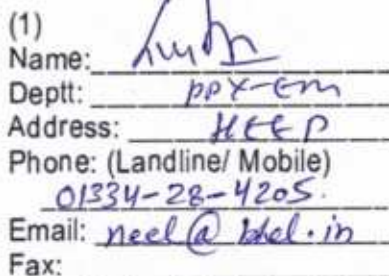 (1)
Name:
Deptt: PPX-Em
Address: HEEP
Phone: (Landline/ Mobile)
01334-28-4205.
Email: neel@bhel.in
Fax: